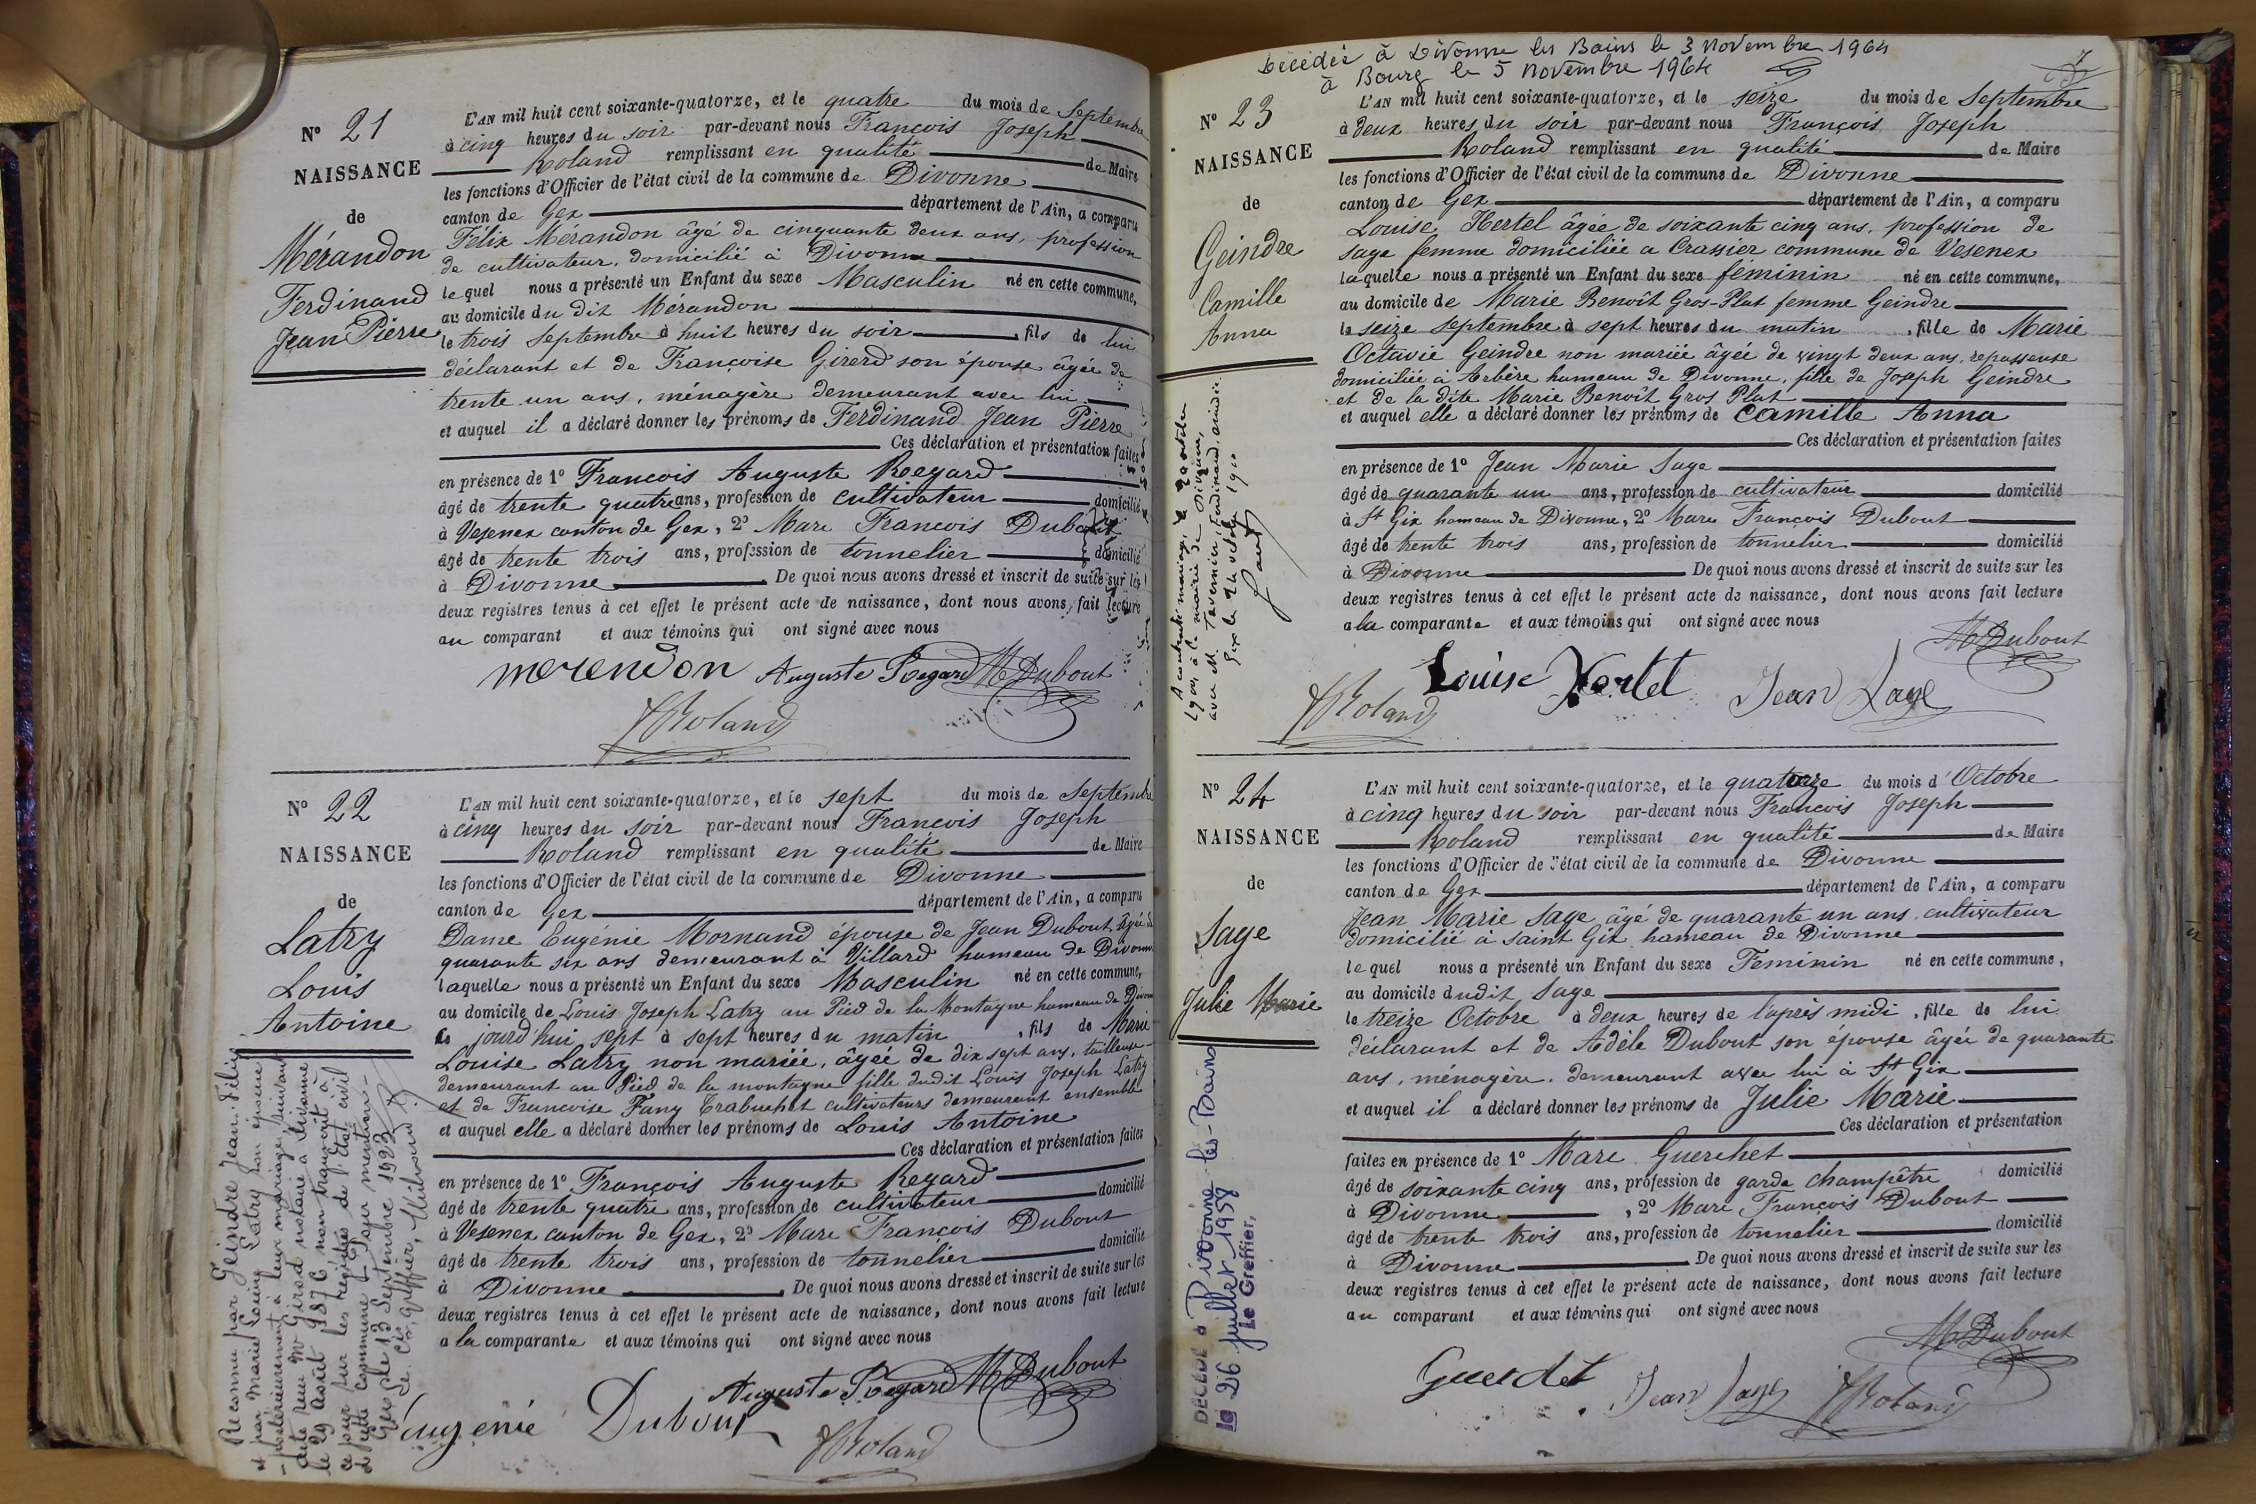 N° 21
NAISSANCE
de
Mérandon
Ferdinand
Jean Pierre
L'AN mil huit cent soixante-quatorze, et le quatre du mois de Septembre
à cinq heures du soir par-devant nous François Joseph
Roland remplissant en qualité de Maire
les fonctions d'Officier de l'état civil de la commune de Divonne
canton de Gex département de l'Ain, a comparu
Félix Mérandon âgé de cinquante deux ans, profession
de cultivateur, domicilié à Divonne
lequel nous a présenté un Enfant du sexe Masculin né en cette commune,
au domicile du dit Mérandon
le trois Septembre à huit heures du soir, fils de lui
déclarant et de Françoise Girerd son épouse âgée de
trente un ans, ménagère demeurant avec lui
et auquel il a déclaré donner les prénoms de Ferdinand Jean Pierre
Ces déclaration et présentation faites
en présence de 1° François Auguste Roegard
âgé de trente quatre ans, profession de cultivateur domicilié
à Vesenex canton de Gex, 2° Marc François Dubout
âgé de trente trois ans, profession de tonnelier domicilié
à Divonne De quoi nous avons dressé et inscrit de suite sur les
deux registres tenus à cet effet le présent acte de naissance, dont nous avons fait lecture
au comparant et aux témoins qui ont signé avec nous
merendon Auguste Regard M Dubout
JRoland
N° 22
NAISSANCE
de
Latry
Louis
Antoine
L'AN mil huit cent soixante-quatorze, et le sept du mois de Septembre
à cinq heures du soir par-devant nous François Joseph
Roland remplissant en qualité de Maire
les fonctions d'Officier de l'état civil de la commune de Divonne
canton de Gex département de l'Ain, a comparu
Dame Eugénie Mornand épouse de Jean Dubout âgée de
quarante six ans demeurant à Villard hameau de Divonne
laquelle nous a présenté un Enfant du sexe Masculin né en cette commune,
au domicile de Louis Joseph Latry au Pied de la Montagne hameau de Divonne
le jourd'hui sept à sept heures du matin, fils de Marie
Louise Latry non mariée, âgée de dix sept ans, tailleuse
demeurant au Pied de la montagne fille dudit Louis Joseph Latry
et de Francoise Fany Trabuchet cultivateurs demeurant ensemble
et auquel elle a déclaré donner les prénoms de Louis Antoine
Ces déclaration et présentation faites
en présence de 1° François Auguste Regard
âgé de trente quatre ans, profession de cultivateur domicilié
à Vesenex canton de Gex, 2° Marc François Dubout
âgé de trente trois ans, profession de tonnelier domicilié
à Divonne De quoi nous avons dressé et inscrit de suite sur les
deux registres tenus à cet effet le présent acte de naissance, dont nous avons fait lecture
a la comparante et aux témoins qui ont signé avec nous
Auguste Regard M Dubout
Eugénie Dubout
JRoland
Reconnu par Geindre Jean Félix
et par Marie Louise Latry son épouse
postérieurement à leur mariage, suivant
acte reçu Me Girod notaire à Divonne
le 29 août 1876 non transcrit à
ce jour sur les registres de l'Etat civil
de cette commune. Pour mention.
Gex, le 13 Septembre 1923
Le Greffier,
Décédée à Divonne les Bains le 3 novembre 1964
à Bourg le 5 novembre 1964
N° 23
NAISSANCE
de
Geindre
Camille
Anna
L'AN mil huit cent soixante-quatorze, et le seize du mois de Septembre
à deux heures du soir par-devant nous François Joseph
Roland remplissant en qualité de Maire
les fonctions d'Officier de l'état civil de la commune de Divonne
canton de Gex département de l'Ain, a comparu
Louise Hertel âgée de soixante cinq ans, profession de
sage femme domiciliée a Crassier commune de Vesenex
laquelle nous a présenté un Enfant du sexe féminin né en cette commune,
au domicile de Marie Benoît Gros-Plat femme Geindre
le seize septembre à sept heures du matin, fille de Marie
Octavie Geindre non mariée âgée de vingt deux ans, repasseuse
domiciliée à Arbère hameau de Divonne, fille de Joseph Geindre
et de la dite Marie Benoit Gros Plat
et auquel elle a déclaré donner les prénoms de Camille Anna
Ces déclaration et présentation faites
en présence de 1° Jean Marie Sage
âgé de quarante un ans, profession de cultivateur domicilié
à St Gix hameau de Divonne, 2° Marc François Dubout
âgé de trente trois ans, profession de tonnelier domicilié
à Divonne De quoi nous avons dressé et inscrit de suite sur les
deux registres tenus à cet effet le présent acte de naissance, dont nous avons fait lecture
a la comparante et aux témoins qui ont signé avec nous
M Dubout
Louise Hertel Jean Sage
JRoland
A contracté mariage, à
Lyon, à la mairie de
avec M. Tavernier, Ferdinand
Gex le 24 octobre 1910
N° 24
NAISSANCE
de
Sage
Julie Marie
L'AN mil huit cent soixante-quatorze, et le quatorze du mois d'Octobre
à cinq heures du soir par-devant nous François Joseph
Roland remplissant en qualité de Maire
les fonctions d'Officier de l'état civil de la commune de Divonne
canton de Gex département de l'Ain, a comparu
Jean Marie Sage âgé de quarante un ans cultivateur
domicilié à saint Gix hameau de Divonne
lequel nous a présenté un Enfant du sexe Feminin né en cette commune,
au domicile dudit Sage
le treize Octobre à deux heures de l'après midi, fille de lui
déclarant et de Adèle Dubout son épouse âgée de quarante
ans, ménagère, demeurant avec lui à St Gix
et auquel il a déclaré donner les prénoms de Julie Marie
Ces déclaration et présentation
faites en présence de 1° Marc Guerchet
âgé de soixante cinq ans, profession de garde champêtre domicilié
à Divonne, 2° Marc François Dubout
âgé de trente trois ans, profession de tonnelier domicilié
à Divonne De quoi nous avons dressé et inscrit de suite sur les
deux registres tenus à cet effet le présent acte de naissance, dont nous avons fait lecture
au comparant et aux témoins qui ont signé avec nous
M Dubout
Guerchet Jean Sage JRoland
DÉCÉDÉ à Divonne-les-Bains
le 26 juillet 1958
Le Greffier,